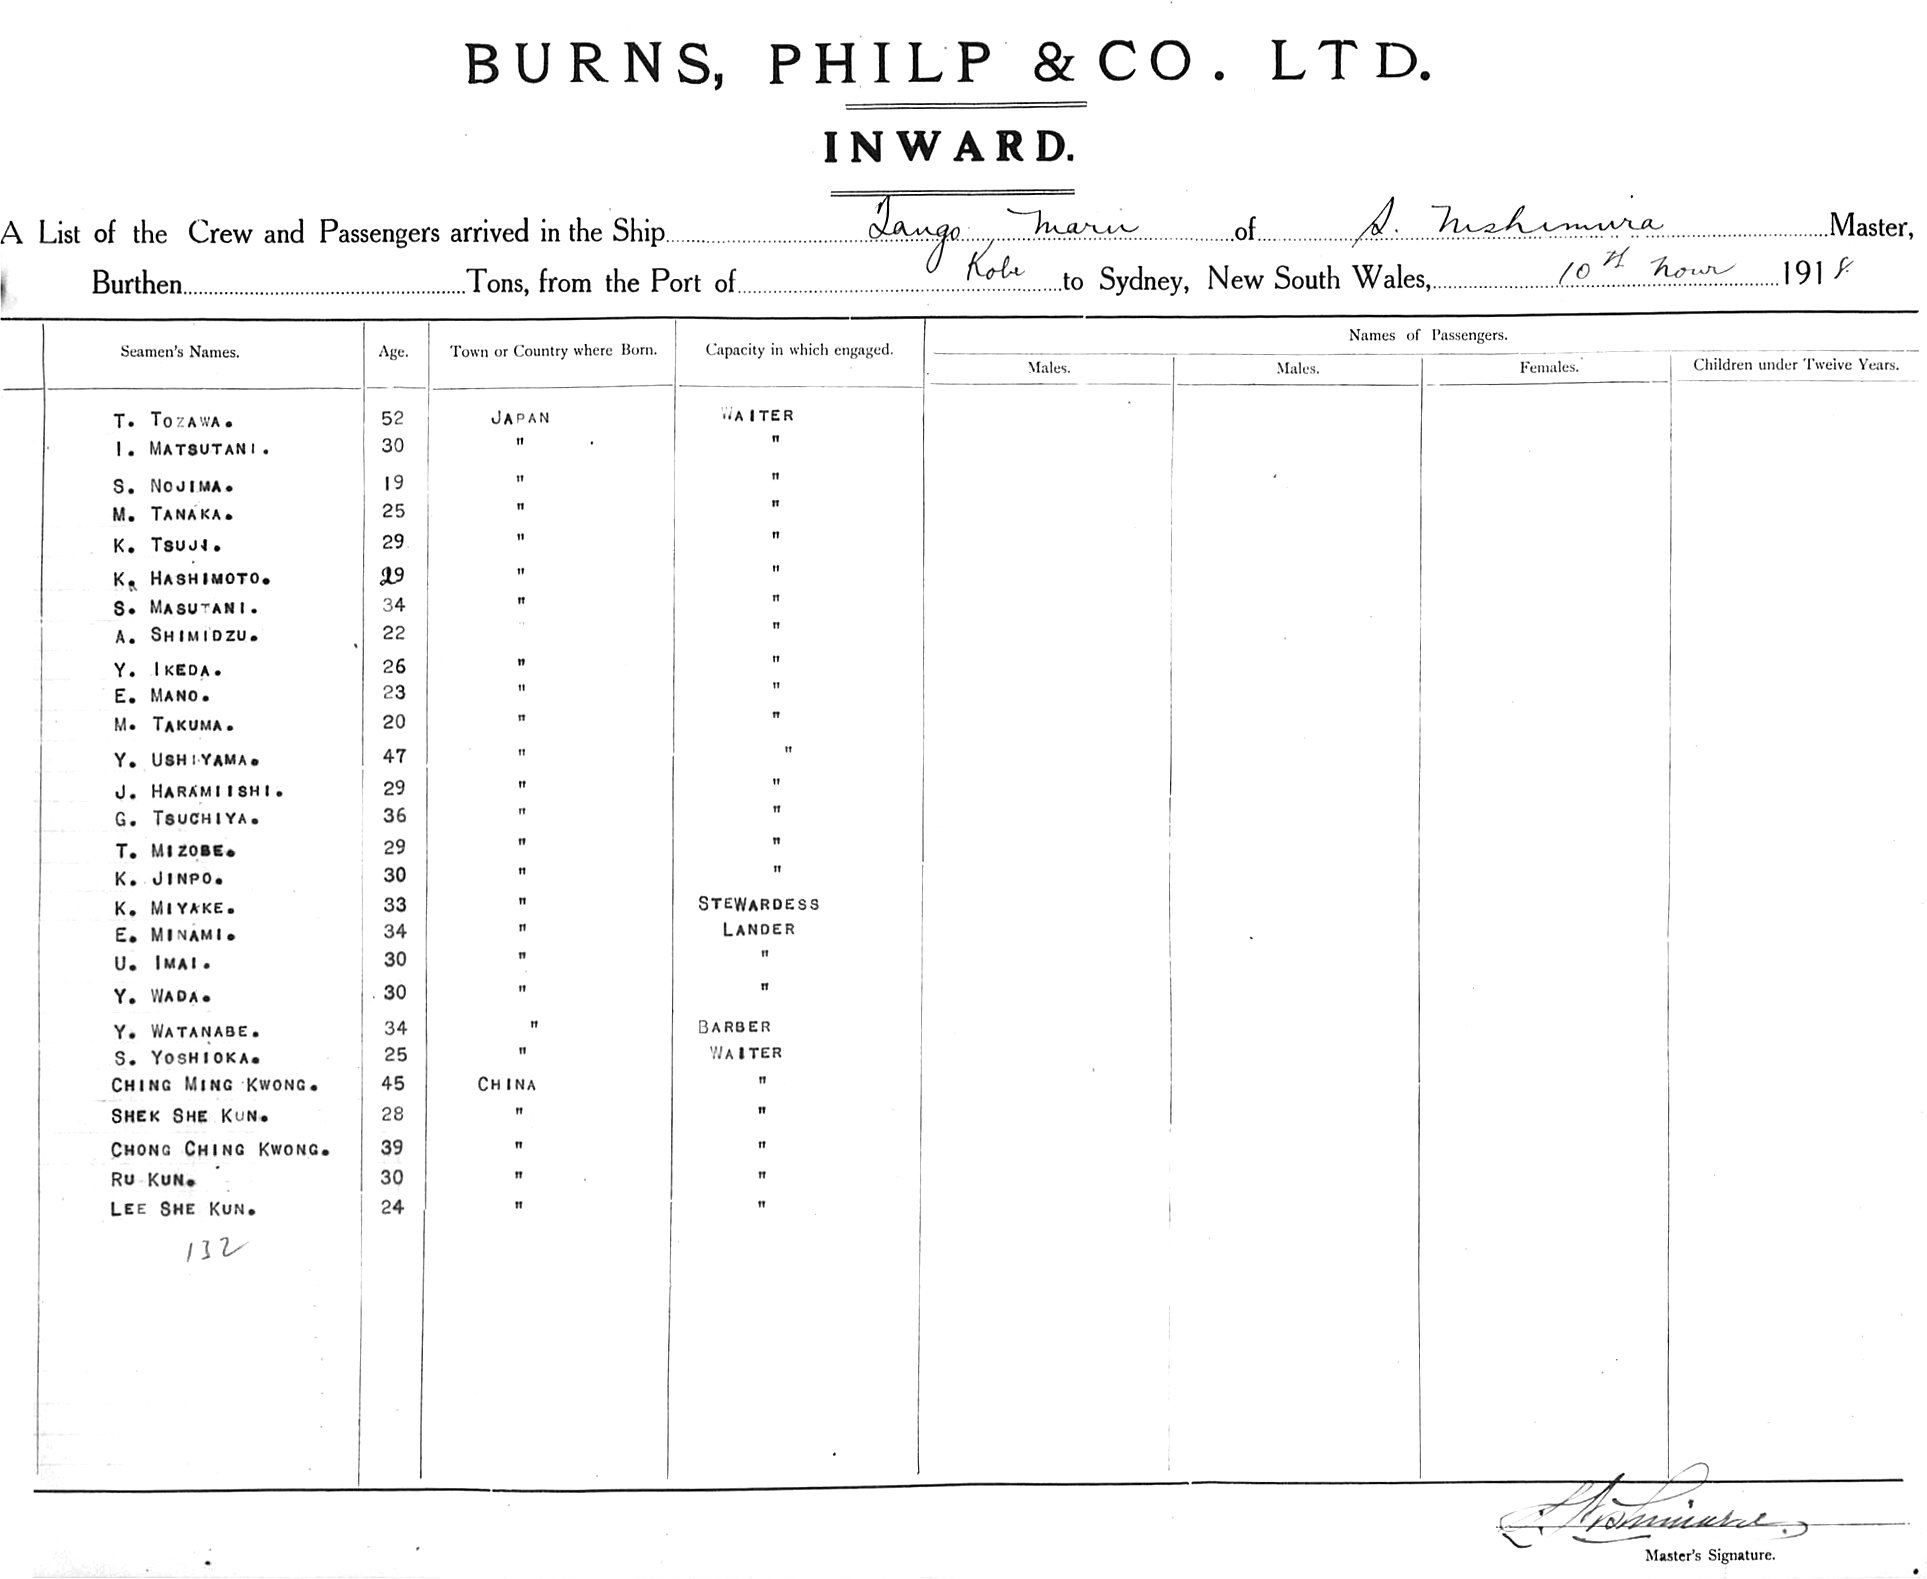 BURNS, PHILP & CO. LTD.
INWARD.
A List of the Crew and Passengers arrived in the Ship Tango Maru of S. Nishimura Master,
Burthen Tons, from the Port of Kobe to Sydney, New South Wales, 10th Novr 1918
Names of Passengers.
Seamen's Names. Age. Town or Country where Born. Capacity in which engaged. Males. Males. Females. Children under Twelve Years.
T. TOZAWA. 52 JAPAN WAITER
I. MATSUTANI. 30 " "
S. NOJIMA. 19 " "
M. TANAKA. 25 " "
K. TSUJI. 29 " "
K. HASHIMOTO. 29 " "
S. MASUTANI. 34 " "
A. SHIMIDZU. 22 "
Y. IKEDA. 26 " "
E. MANO. 23 " "
M. TAKUMA. 20 " "
Y. USHIYAMA. 47 " "
J. HARAMIISHI. 29 " "
G. TSUCHIYA. 36 " "
T. MIZOBE. 29 " "
K. JINPO. 30 " "
K. MIYAKE. 33 " STEWARDESS
E. MINAMI. 34 " LANDER
U. IMAI. 30 " "
Y. WADA. 30 " "
Y. WATANABE. 34 " BARBER
S. YOSHIOKA. 25 " WAITER
CHING MING KWONG. 45 CHINA "
SHEK SHE KUN. 28 " "
CHONG CHING KWONG. 39 " "
RU KUN. 30 " "
LEE SHE KUN. 24 " "
132
S. Nishimura
Master's Signature.